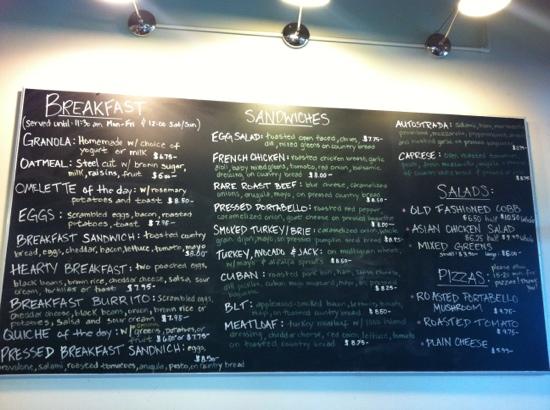 BREAKFAST
(served until 11:30 am Mon-Fri & 12:00 Sat/Sun)
GRANOLA: Homemade w/ choice of
yogurt or milk $6.75-
OATMEAL: Steel cut w/ brown sugar,
milk, raisins, fruit $6.00
OMELETTE of the day: w/ rosemary
potatoes and toast $8.50
EGGS: Scrambled eggs, bacon, roasted
potatoes, toast $7.95-
BREAKFAST SANDWICH: toasted country
bread, eggs, cheddar, bacon, lettuce, tomato, mayo
$8.00
HEARTY BREAKFAST: two poached eggs,
black beans, brown rice, cheddar cheese, salsa, sour
cream, tortillas or toast $7.95-
BREAKFAST BURRITO: Scrambled eggs,
cheddar cheese, black beans, onion, brown rice or
potatoes, salsa and sour cream $7.95-
QUICHE of the day: w/ greens, potatoes, or
fruit $6.00 or $7.75-
PRESSED BREAKFAST SANDWICH: eggs,
$8.50
provolone, salami, roasted tomatoes, arugula, pesto, on country bread
SANDWICHES
EGG SALAD: toasted open faced, chives, $7.75-
dill, mixed greens on country bread
FRENCH CHICKEN: roasted chicken breast, garlic
aioli, baby greens, tomato, red onion, balsamic
dressing, on country bread $8.00
RARE ROAST BEEF: blue cheese, caramelized
onions, arugula, mayo, on pressed bread
PRESSED PORTABELLO: roasted red pepper,
caramelized onion, goat cheese on pressed baguette
SMOKED TURKEY/BRIE: caramelized onion,
grain dijon, mayo, on pressed pumpkin seed bread $8.50
TURKEY, AVOCADO & JACK: on multigrain wheat
w/ mayo & alfalfa sprouts
CUBAN: roasted pork loin, ham, swiss cheese,
dill pickles, cuban mojo mustard, mayo, on pressed
BLT: applewood-smoked bacon, lettuce, tomato,
mayo, on toasted country bread $8.50
MEATLOAF: turkey meatloaf w/ 1000 island
dressing, cheddar cheese, red onion, lettuce, tomato
on toasted country bread $8.75-
AUTOSTRADA: salami, ham, mortadella,
provolone, mozzarella, pepperoncini,
CAPRESE: open toasted tomato,
SALADS:
• OLD FASHIONED COBB
$6.50 half $10.50 whole
• ASIAN CHICKEN SALAD
$6.25 half $9.95 whole
• MIXED GREENS
small: $3.95- lg: $6.00-
PIZZAS: please
• ROASTED PORTABELLO
MUSHROOM $7.95-
• ROASTED TOMATO
$7.95-
• PLAIN CHEESE
$5.95-